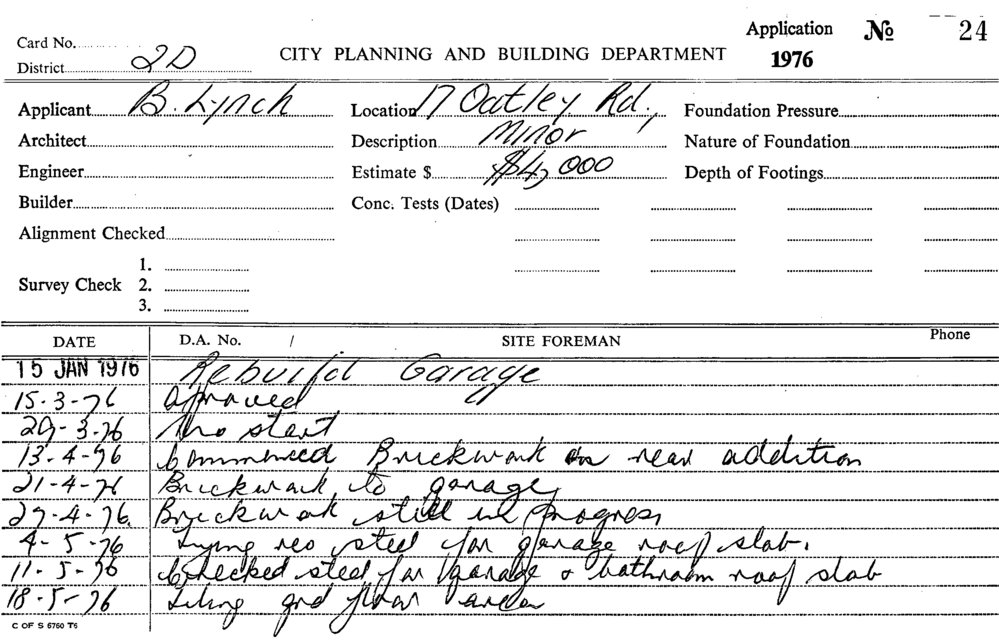 Application № 24
Card No.
District 2D
CITY PLANNING AND BUILDING DEPARTMENT
1976
Applicant B. Lynch
Location 17 Oatley Rd.,
Foundation Pressure
Architect
Description Minor
Nature of Foundation
Engineer
Estimate $ $4,000
Depth of Footings
Builder
Conc. Tests (Dates)
Alignment Checked
Survey Check 1.
2.
3.
DATE D.A. No. / SITE FOREMAN Phone
15 JAN 1976 Rebuild Garage
15-3-76 Aproved
29-3-76 No start
13-4-76 Commenced Brickwork on rear addition
21-4-76 Brickwork to garage
29-4-76. Brickwork still in progress
4-5-76 Tying reo steel for garage roof slab.
11-5-76 Checked steel for garage & bathroom roof slab
18-5-76 Tiling grd floor area
C OF S 6760 T6